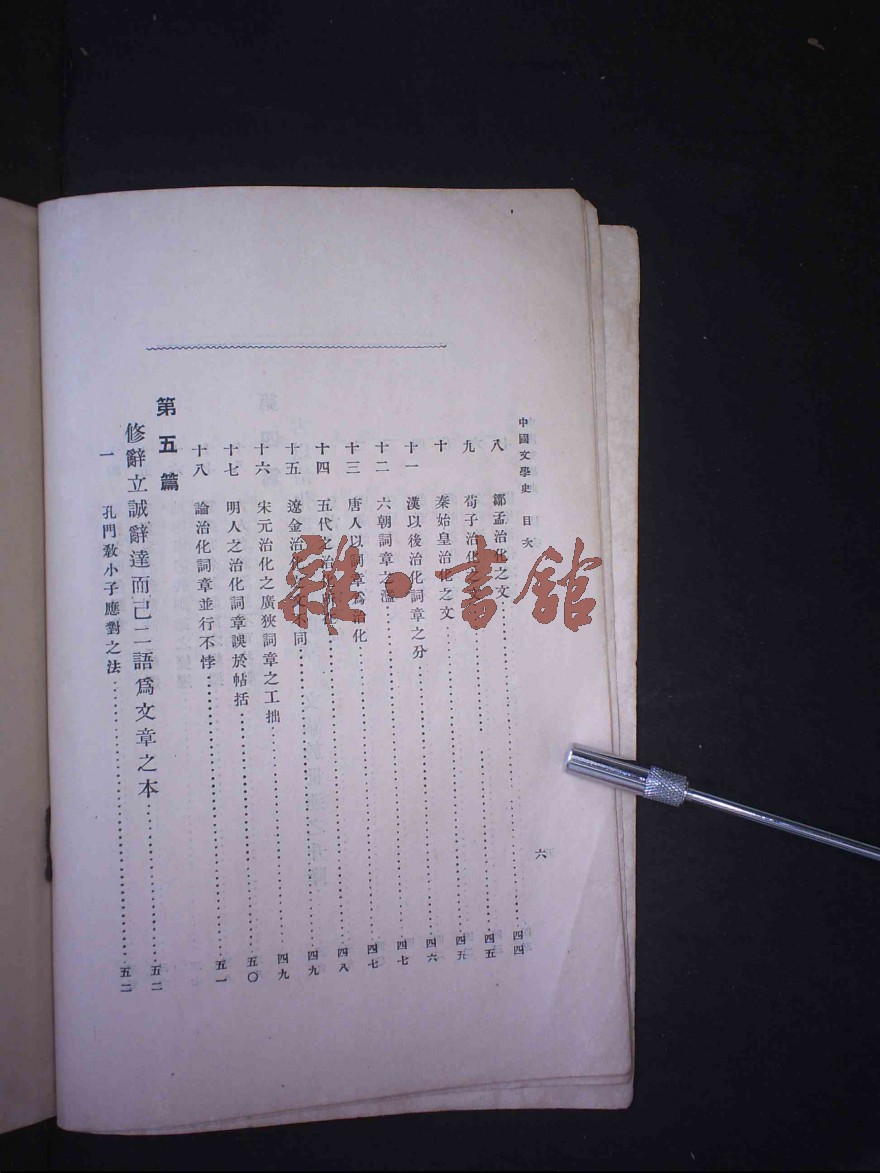 中國文學史 目次 六
八 鄒孟治化之文 四四
九 荀子治化之 四五
十 秦始皇治化之文 四五
十一 漢以後治化詞章之分 四六
十二 六朝詞章之濫 四七
十三 唐人以詞章爲治化 四七
十四 五代之治化 四八
十五 遼金治化之文不同 四九
十六 宋元治化之廣狹詞章之工拙 四九
十七 明人之治化詞章誤於帖括 五〇
十八 論治化詞章並行不悖 五一
第五篇
修辭立誠辭達而已二語爲文章之本 五二
一 孔門敎小子應對之法 五二
雜·書館